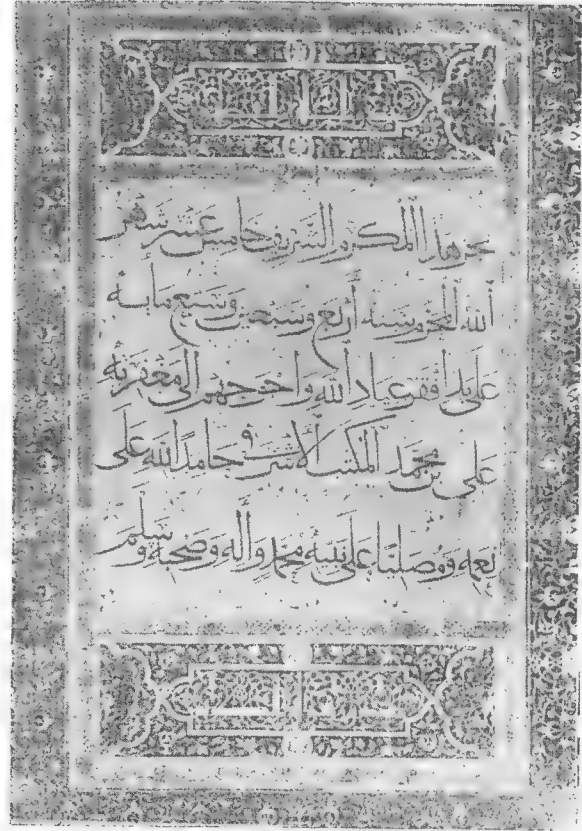 نجز هذا الشريف خامس عشر شهر
الله المحرم سنة أربع وسبعين وسبع مائة
على يد أفقر عباد الله وأحوجهم إلى مغفرته
علي بن محمد المكتب الأشرفي حامدا لله على
نعمه ومصليا على نبيه محمد وآله وصحبه وسلم